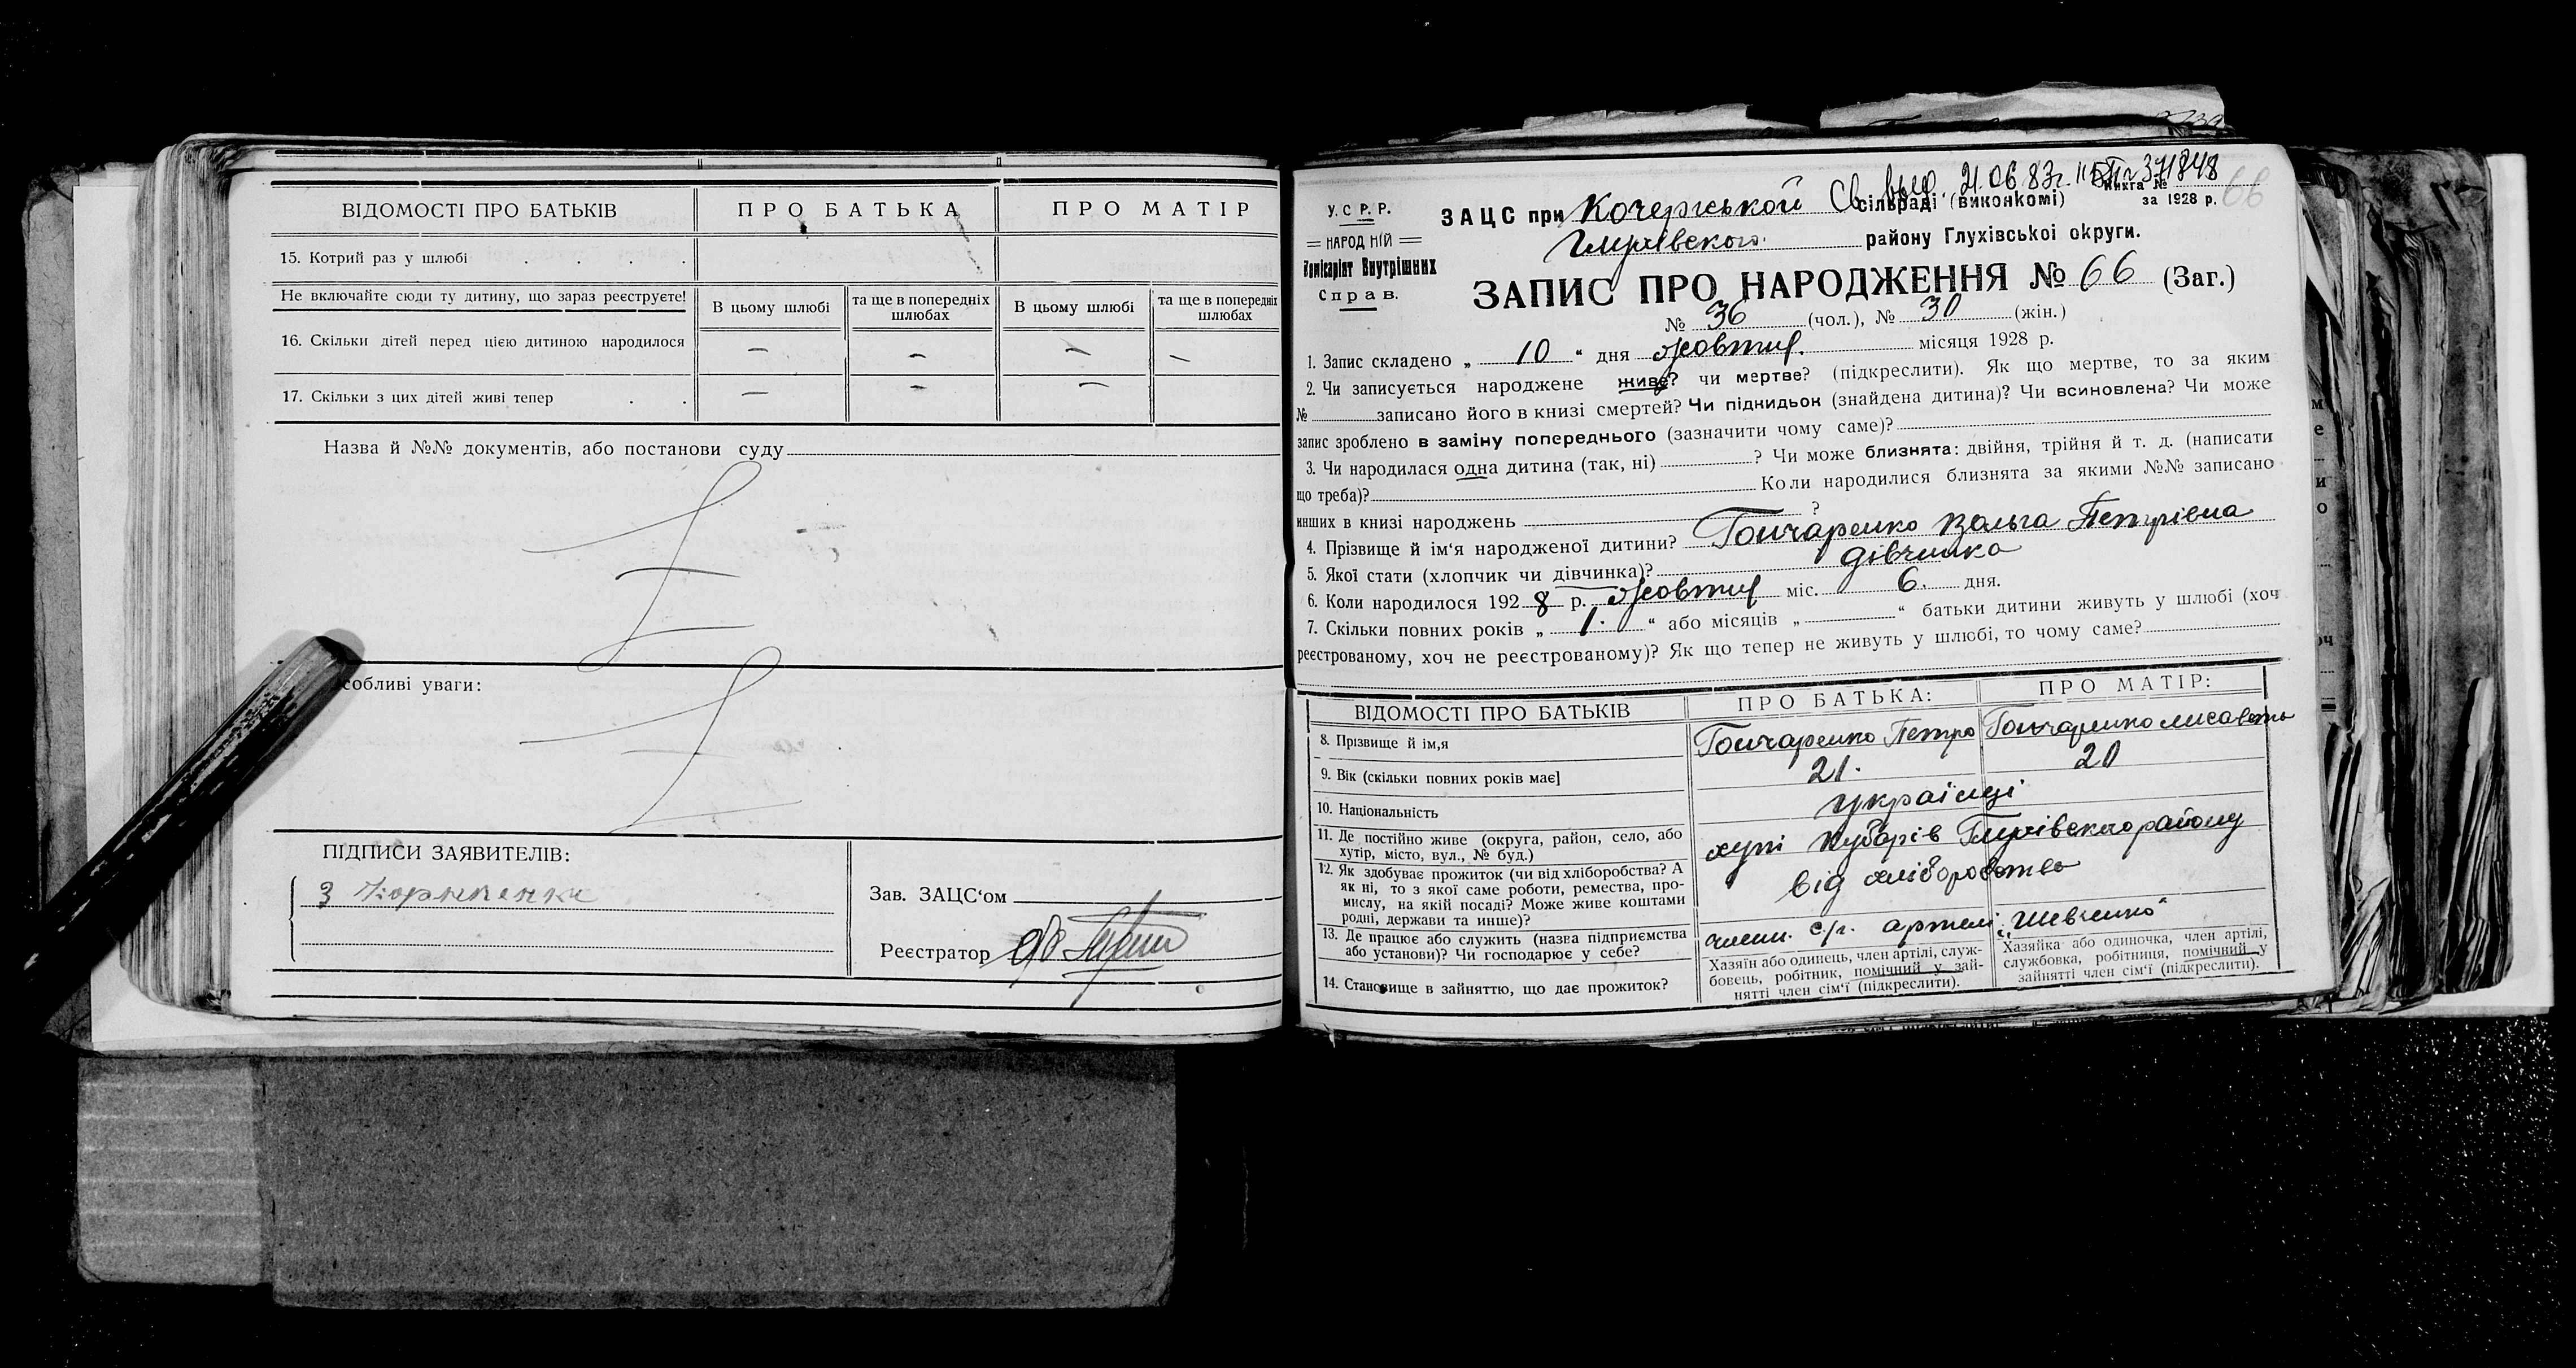 ВІДОМОСТІ ПРО БАТЬКІВ
ПРО БАТЬКА
ПРО МАТІР
15. Котрий раз у шлюбі . . . .
Не включайте сюди ту дитину, що зараз реєструєте!
В цьому шлюбі
та ще в попередніх шлюбах
В цьому шлюбі
та ще в попередніх шлюбах
16. Скільки дітей перед цією дитиною народилося
— — — —
17. Скільки з цих дітей живі тепер . .
— — —
Назва й №№ документів, або постанови суду
Особливі уваги:
ПІДПИСИ ЗАЯВИТЕЛІВ:
Зав. ЗАЦС'ом
Реєстратор
У.С.Р.Р.
НАРОДНІЙ
Комісаріят Внутрішних
Справ.
21.06.83г. 371848
Книга №
за 1928 р.
66
ЗАЦС при Кочергської сільраді (виконкомі)
району Глухівської округи.
ЗАПИС ПРО НАРОДЖЕННЯ № 66 (Заг.)
№ 36 (чол.), № 30 (жін.)
1. Запис складено „ 10 “ дня Жовтня. місяця 1928 р.
2. Чи записується народжене живе? чи мертве? (підкреслити). Як що мертве, то за яким
№ записано його в книзі смертей? Чи підкидьок (знайдена дитина)? Чи всиновлена? Чи може
запис зроблено в заміну попереднього (зазначити чому саме)?
3. Чи народилася одна дитина (так, ні) ? Чи може близнята: двійня, трійня й т. д. (написати
що треба)? Коли народилися близнята за якими №№ записано
инших в книзі народжень ?
4. Прізвище й ім'я народженої дитини? Гончаренко Вольга Петрівна
5. Якої стати (хлопчик чи дівчинка)? дівчинка
6. Коли народилося 1928 р. Жовтня міс. 6. дня.
7. Скільки повних років „ 1. “ або місяців „ “ батьки дитини живуть у шлюбі (хоч
реєстрованому, хоч не реєстрованому)? Як що тепер не живуть у шлюбі, то чому саме?
ВІДОМОСТІ ПРО БАТЬКІВ
ПРО БАТЬКА:
ПРО МАТІР:
8. Прізвище й ім,я
Гончаренко Петро
Гончаренко Лисаветь
9. Вік (скільки повних років має]
21.
20
10. Національність
українці
11. Де постійно живе (округа, район, село, або
хутір, місто, вул., № буд.)
району
12. Як здобуває прожиток (чи від хліборобства? А
як ні, то з якої саме роботи, ремества, про-
мислу, на якій посаді? Може живе коштами
родні, держави та инше)?
від хліборобства
13. Де працює або служить (назва підприємства
або установи)? Чи господарює у себе?
член. с/г. артелі „Шевченко“
14. Становище в зайняттю, що дає прожиток?
Хазяїн або одинець, член артілі, служ-
бовець, робітник, помічний у зай-
нятті член сім'ї (підкреслити).
Хазяйка або одиночка, член артілі,
службовка, робітниця, помічний у
зайнятті член сім'ї (підкреслити).